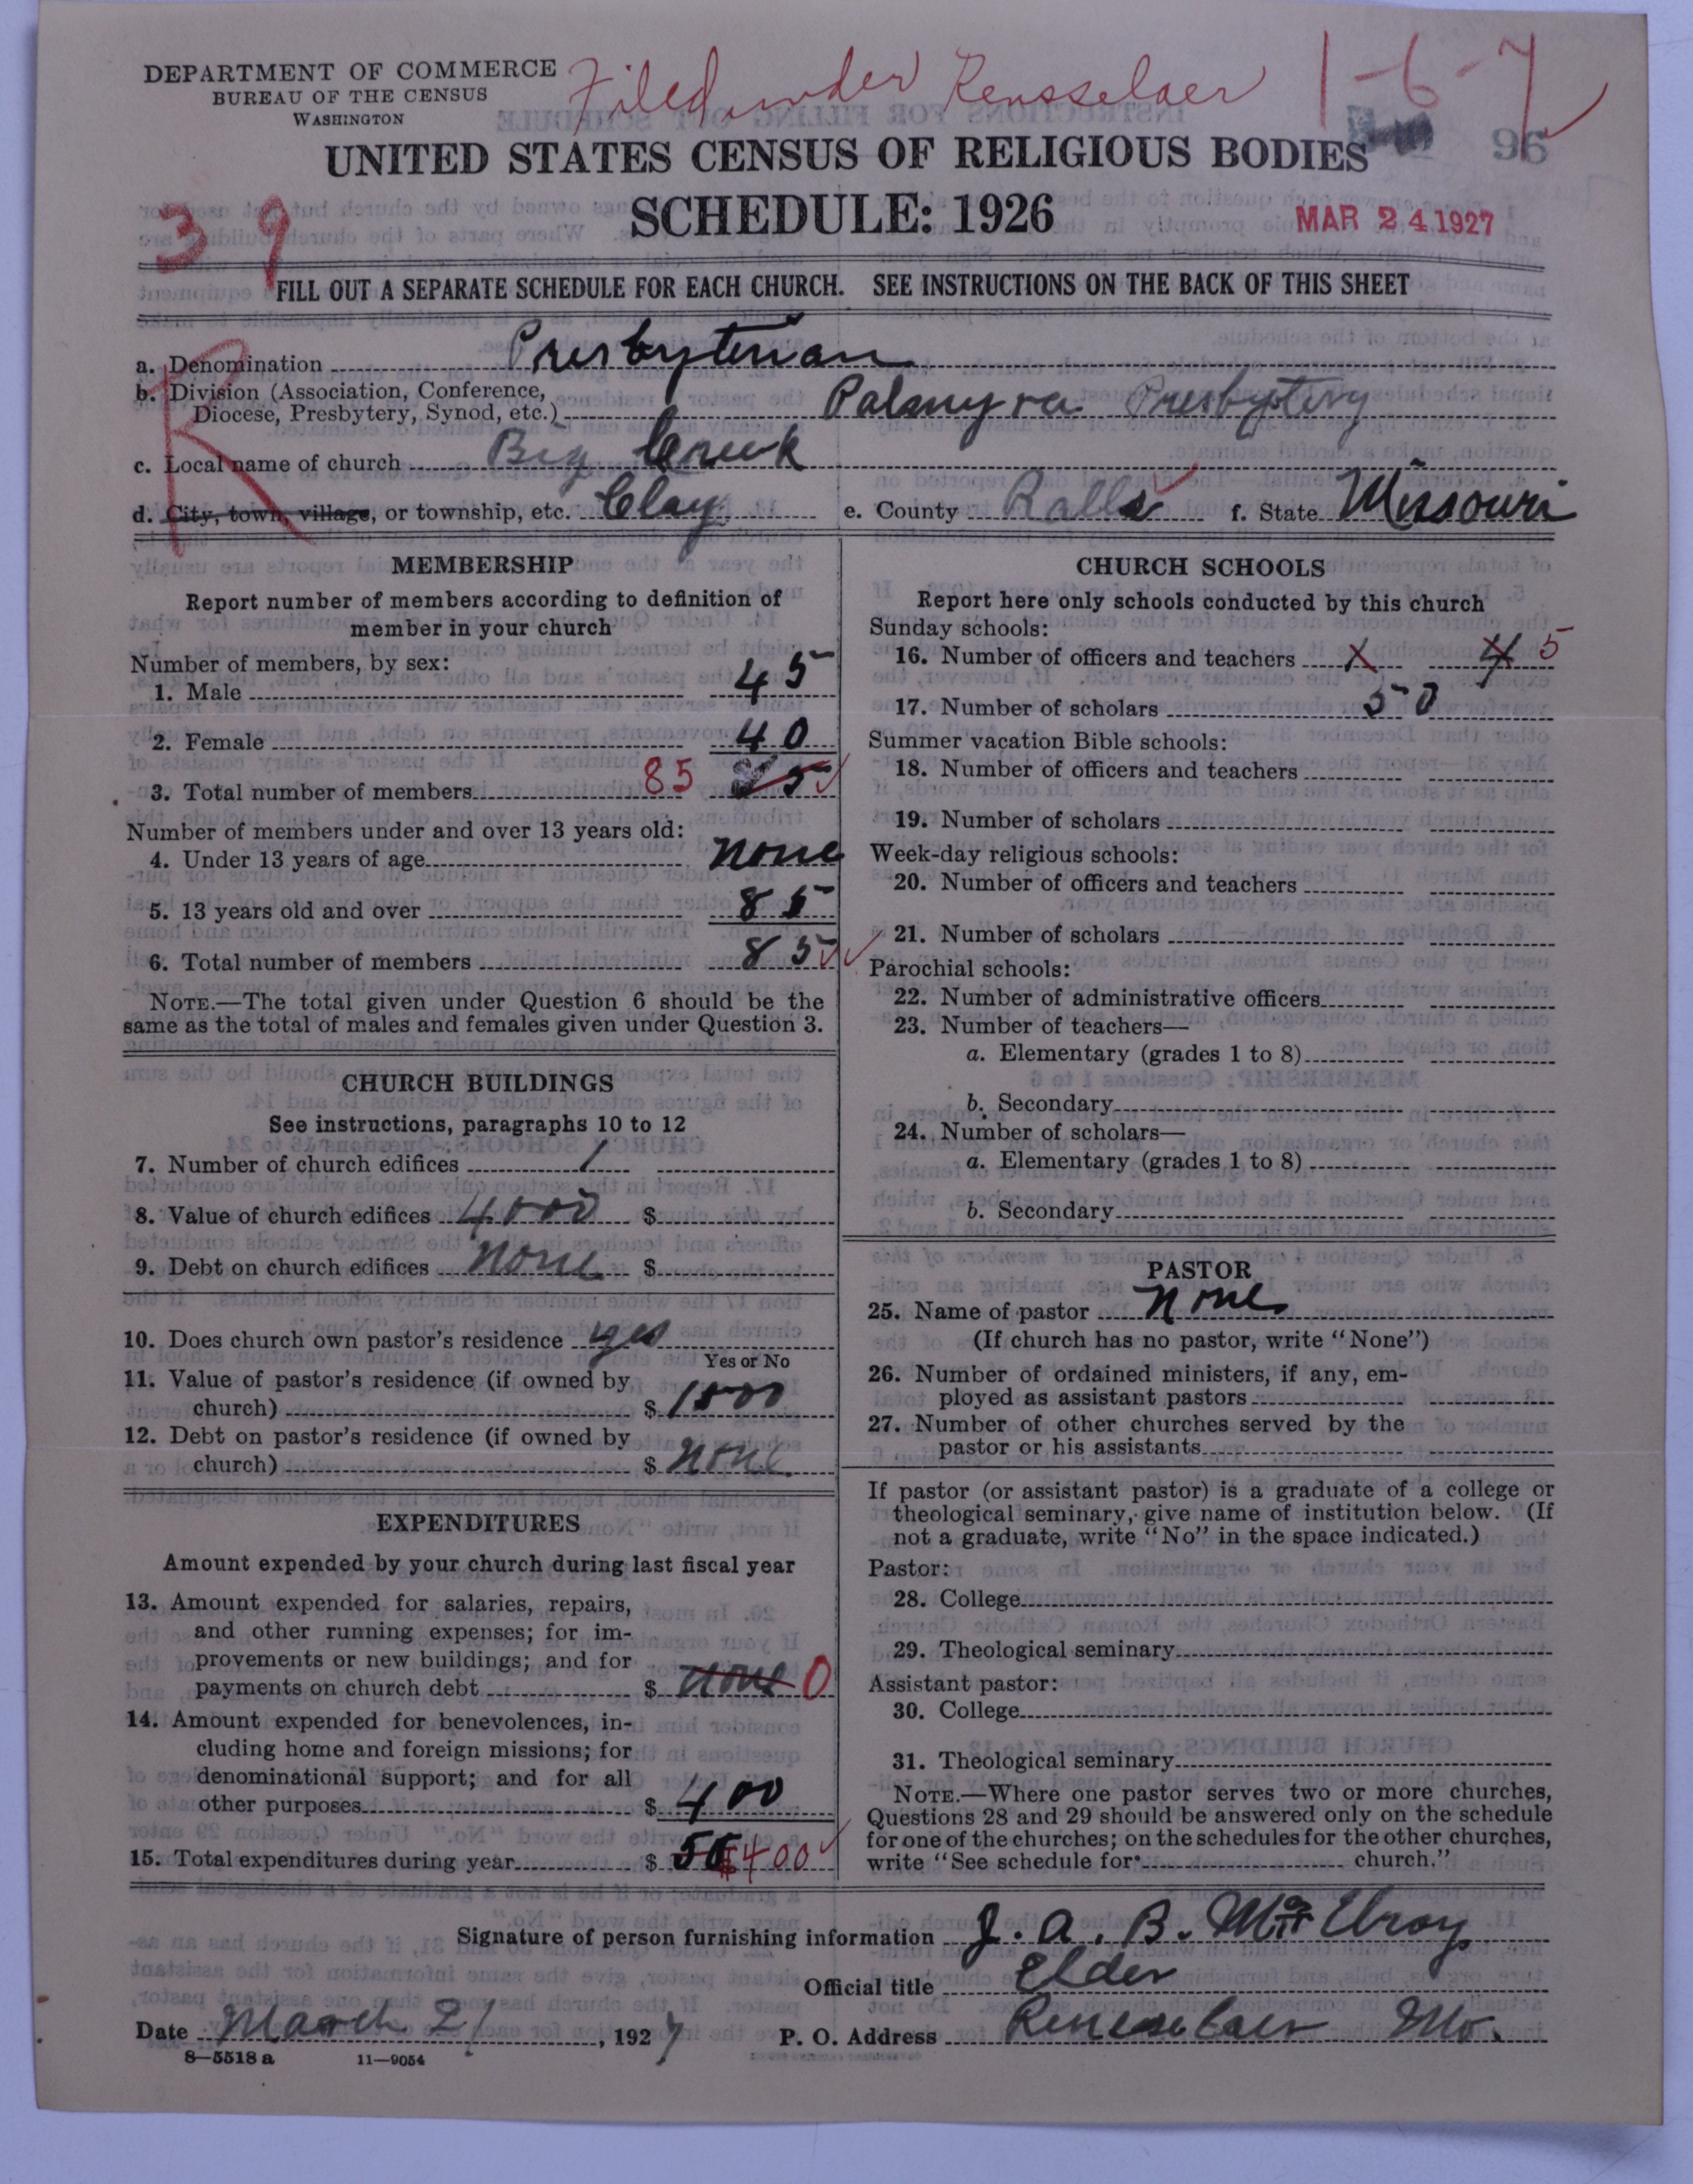 DEPARTMENT OF COMMERCE
BUREAU OF THE CENSUS
WASHINGTON
Filed under Rensselaer 1-6-7
96
UNITED STATES CENSUS OF RELIGIOUS BODIES
SCHEDULE: 1926
MAR 24 1927
39
FILL OUT A SEPARATE SCHEDULE FOR EACH CHURCH. SEE INSTRUCTIONS ON THE BACK OF THIS SHEET
R
a. Denomination Presbyterian
b. Division (Association, Conference,
Diocese, Presbytery, Synod, etc.) Palmyra Presbytery
c. Local name of church Big Creek
d. City, town, village, or township, etc. Clay e. County Ralls f. State Missouri
MEMBERSHIP
Report number of members according to definition of
member in your church
Number of members, by sex:
1. Male 45
2. Female 40
3. Total number of members 85
Number of members under and over 13 years old:
4. Under 13 years of age none
5. 13 years old and over 85
6. Total number of members 85
NOTE.—The total given under Question 6 should be the
same as the total of males and females given under Question 3.
CHURCH BUILDINGS
See instructions, paragraphs 10 to 12
7. Number of church edifices 1
8. Value of church edifices 4000 $
9. Debt on church edifices none $
10. Does church own pastor's residence yes
Yes or No
11. Value of pastor's residence (if owned by
church) $ 1500
12. Debt on pastor's residence (if owned by
church) $ none
EXPENDITURES
Amount expended by your church during last fiscal year
13. Amount expended for salaries, repairs,
and other running expenses; for im-
provements or new buildings; and for
payments on church debt $ none 0
14. Amount expended for benevolences, in-
cluding home and foreign missions; for
denominational support; and for all
other purposes $ 400
15. Total expenditures during year $ 400
CHURCH SCHOOLS
Report here only schools conducted by this church
Sunday schools:
16. Number of officers and teachers X 4 5
17. Number of scholars 50
Summer vacation Bible schools:
18. Number of officers and teachers
19. Number of scholars
Week-day religious schools:
20. Number of officers and teachers
21. Number of scholars
Parochial schools:
22. Number of administrative officers
23. Number of teachers—
a. Elementary (grades 1 to 8)
b. Secondary
24. Number of scholars—
a. Elementary (grades 1 to 8)
b. Secondary
PASTOR
25. Name of pastor None
(If church has no pastor, write "None")
26. Number of ordained ministers, if any, em-
ployed as assistant pastors
27. Number of other churches served by the
pastor or his assistants
If pastor (or assistant pastor) is a graduate of a college or
theological seminary, give name of institution below. (If
not a graduate, write "No" in the space indicated.)
Pastor:
28. College
29. Theological seminary
Assistant pastor:
30. College
31. Theological seminary
NOTE.—Where one pastor serves two or more churches,
Questions 28 and 29 should be answered only on the schedule
for one of the churches; on the schedules for the other churches,
write "See schedule for church."
Signature of person furnishing information J. A. B. McElroy
Official title Elder
Date March 21, 1927 P. O. Address Renesselaer Mo.
8—5518 a 11—9054